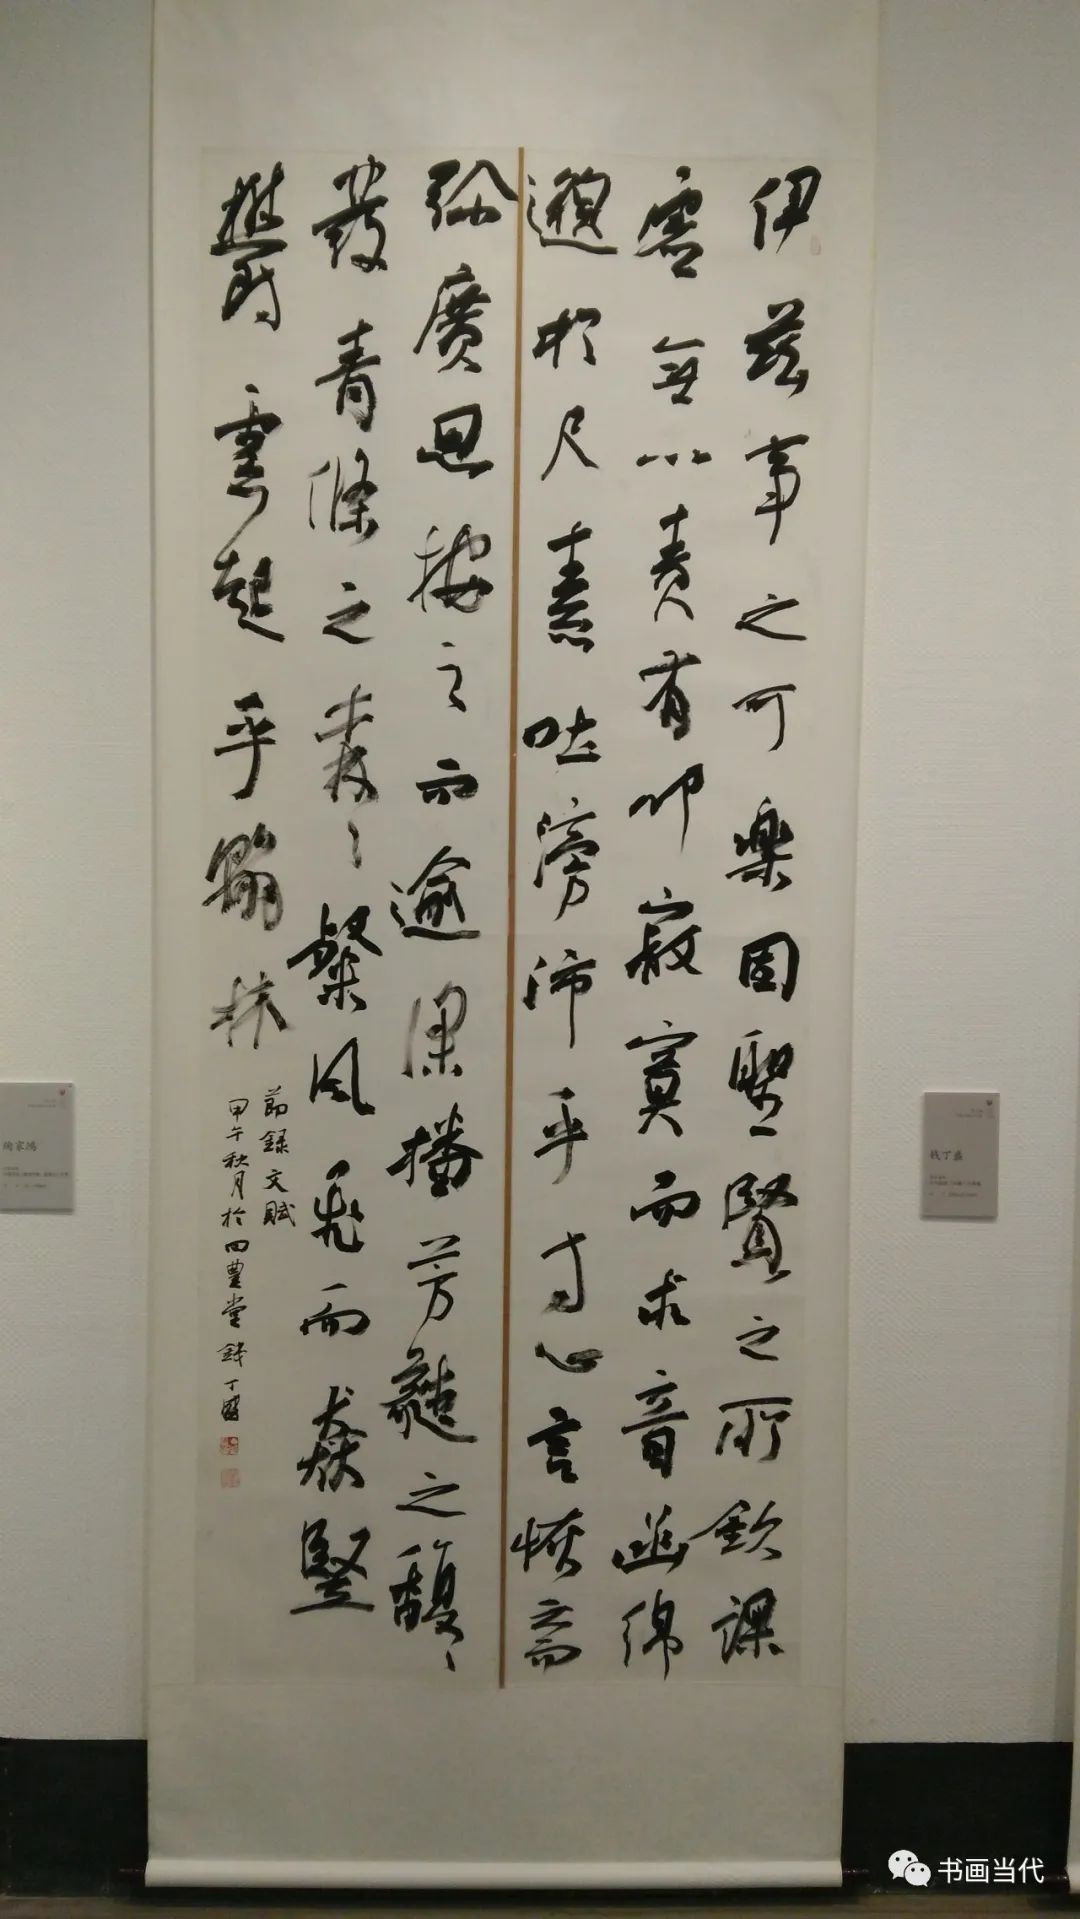 伊茲事之可樂固聖賢之所欽課
虛無以責有叩寂寞而求音函綿
邈於尺素吐滂沛乎寸心言恢之而
弥廣思按之而逾深播芳蕤之馥々
發青條之森々粲風飛而猋豎
鬱雲起乎翰林
節錄文賦
甲午秋月於豐堂錢丁盛
钱丁盛
书画当代